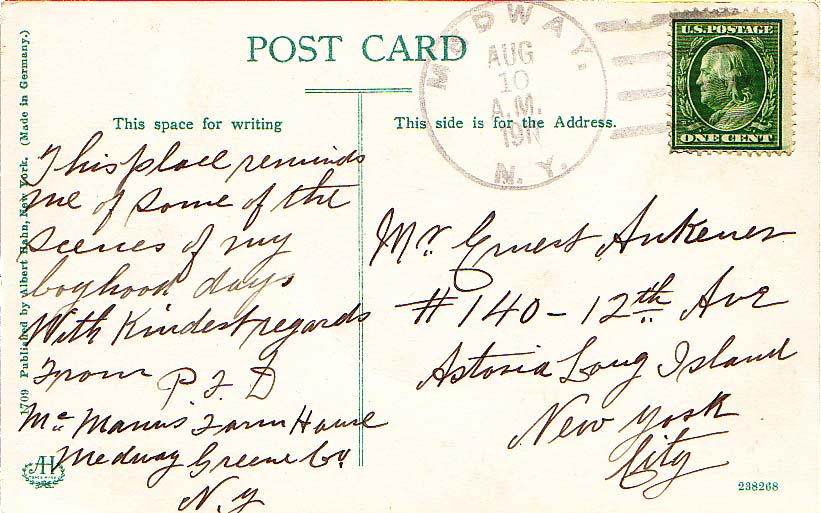 POST CARD
This space for writing
This side is for the Address.
MEDWAY.
AUG
10
A.M.
191
N.Y.
U.S. POSTAGE
ONE CENT
1709 Published by Albert Hahn, New York. (Made in Germany.)
This place reminds
me of some of the
scenes of my
boyhood days
With Kindest regards
From P.F.D
Mc Manus Farm House
Medway Greene Co.
N.Y
Mr. Ernest Ankener
#140 - 12th Ave
Astoria Long Island
New York
City
AH
TRADE MARK
238268